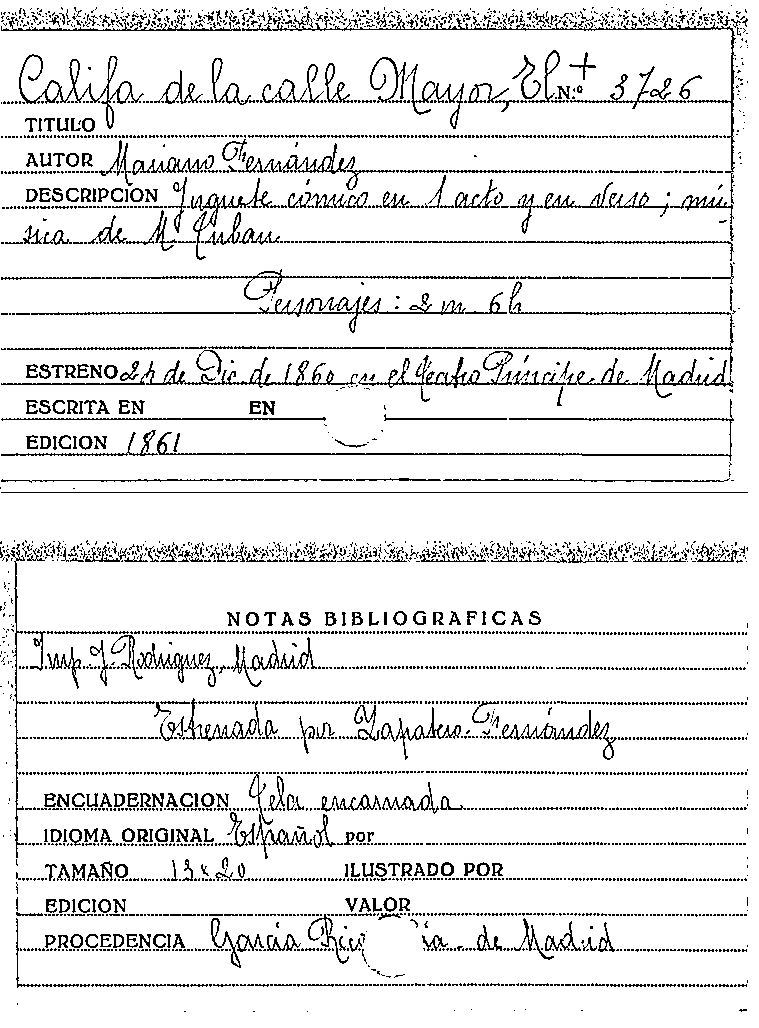 Califa de la calle Mayor, El N.º + 3726
TITULO
AUTOR Mariano Fernández
DESCRIPCION Juguete cómico en 1 acto y en verso; mú-
sica de M.
Personajes: 2 m. 6 h
ESTRENO 24 de Dic. de 1860 en el Teatro Príncipe de Madrid
ESCRITA EN EN
EDICION 1861
NOTAS BIBLIOGRAFICAS
Imp. J. Rodriguez, Madrid
Estrenada por Zapatero-Fernández
ENCUADERNACION Tela encarnada
IDIOMA ORIGINAL Español por
TAMAÑO 13 x 20 ILUSTRADO POR
EDICION VALOR
PROCEDENCIA García de Madrid